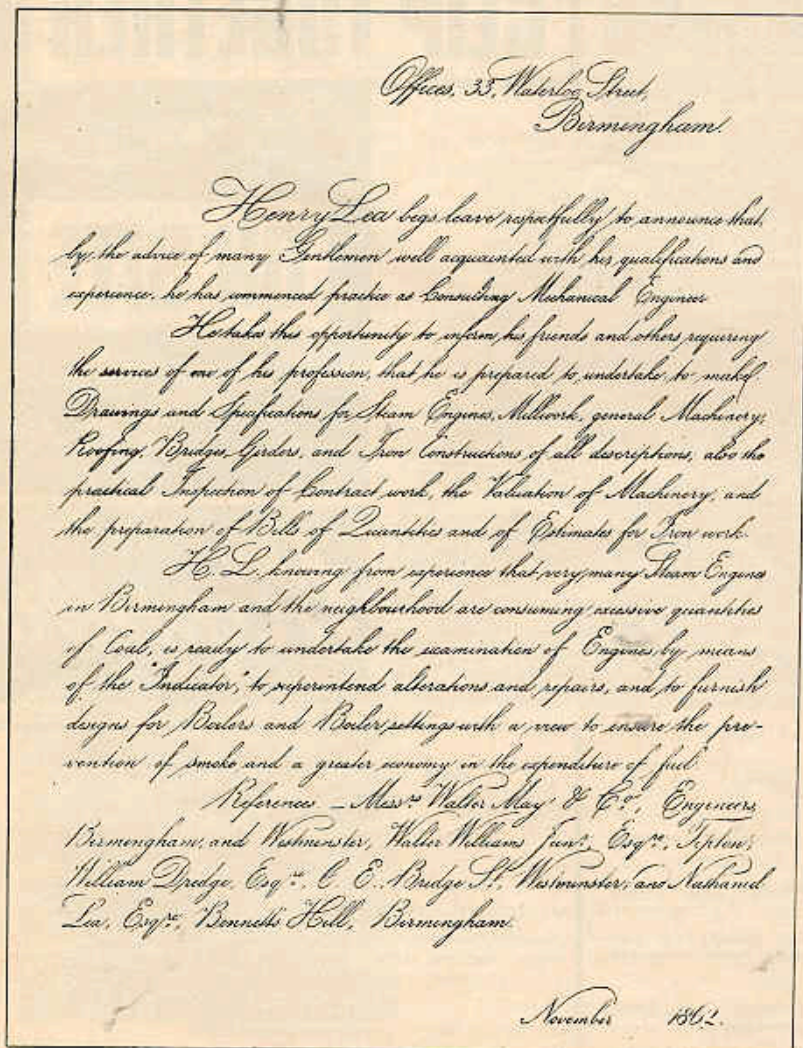 Offices, 33, Waterloo Street,
Birmingham.
Henry Lea begs leave respectfully to announce that,
by the advice of many Gentlemen well acquainted with his qualifications and
experience, he has commenced practice as Consulting Mechanical Engineer
He takes this opportunity to inform his friends and others requiring
the services of one of his profession, that he is prepared to undertake to make
Drawings and Specifications for Steam Engines, Millwork, general Machinery,
Roofing, Bridges, Girders, and Iron Constructions of all descriptions, also the
practical Inspection of Contract work, the Valuation of Machinery, and
the preparation of Bills of Quantities and of Estimates for Iron work.
H. L. knowing from experience that very many Steam Engines
in Birmingham and the neighbourhood are consuming excessive quantities
of Coal, is ready to undertake the examination of Engines by means
of the "Indicator," to superintend alterations and repairs, and to furnish
designs for Boilers and Boiler settings with a view to ensure the pre-
vention of smoke and a greater economy in the expenditure of fuel.
References – Messrs. Walter May & Co., Engineers,
Birmingham, and Westminster, Walter Williams Junr. Esqre., Tipton,
William Dredge, Esqre. C. E. Bridge St., Westminster, and Nathaniel
Lea, Esqre., Bennetts Hill, Birmingham.
November 1862.